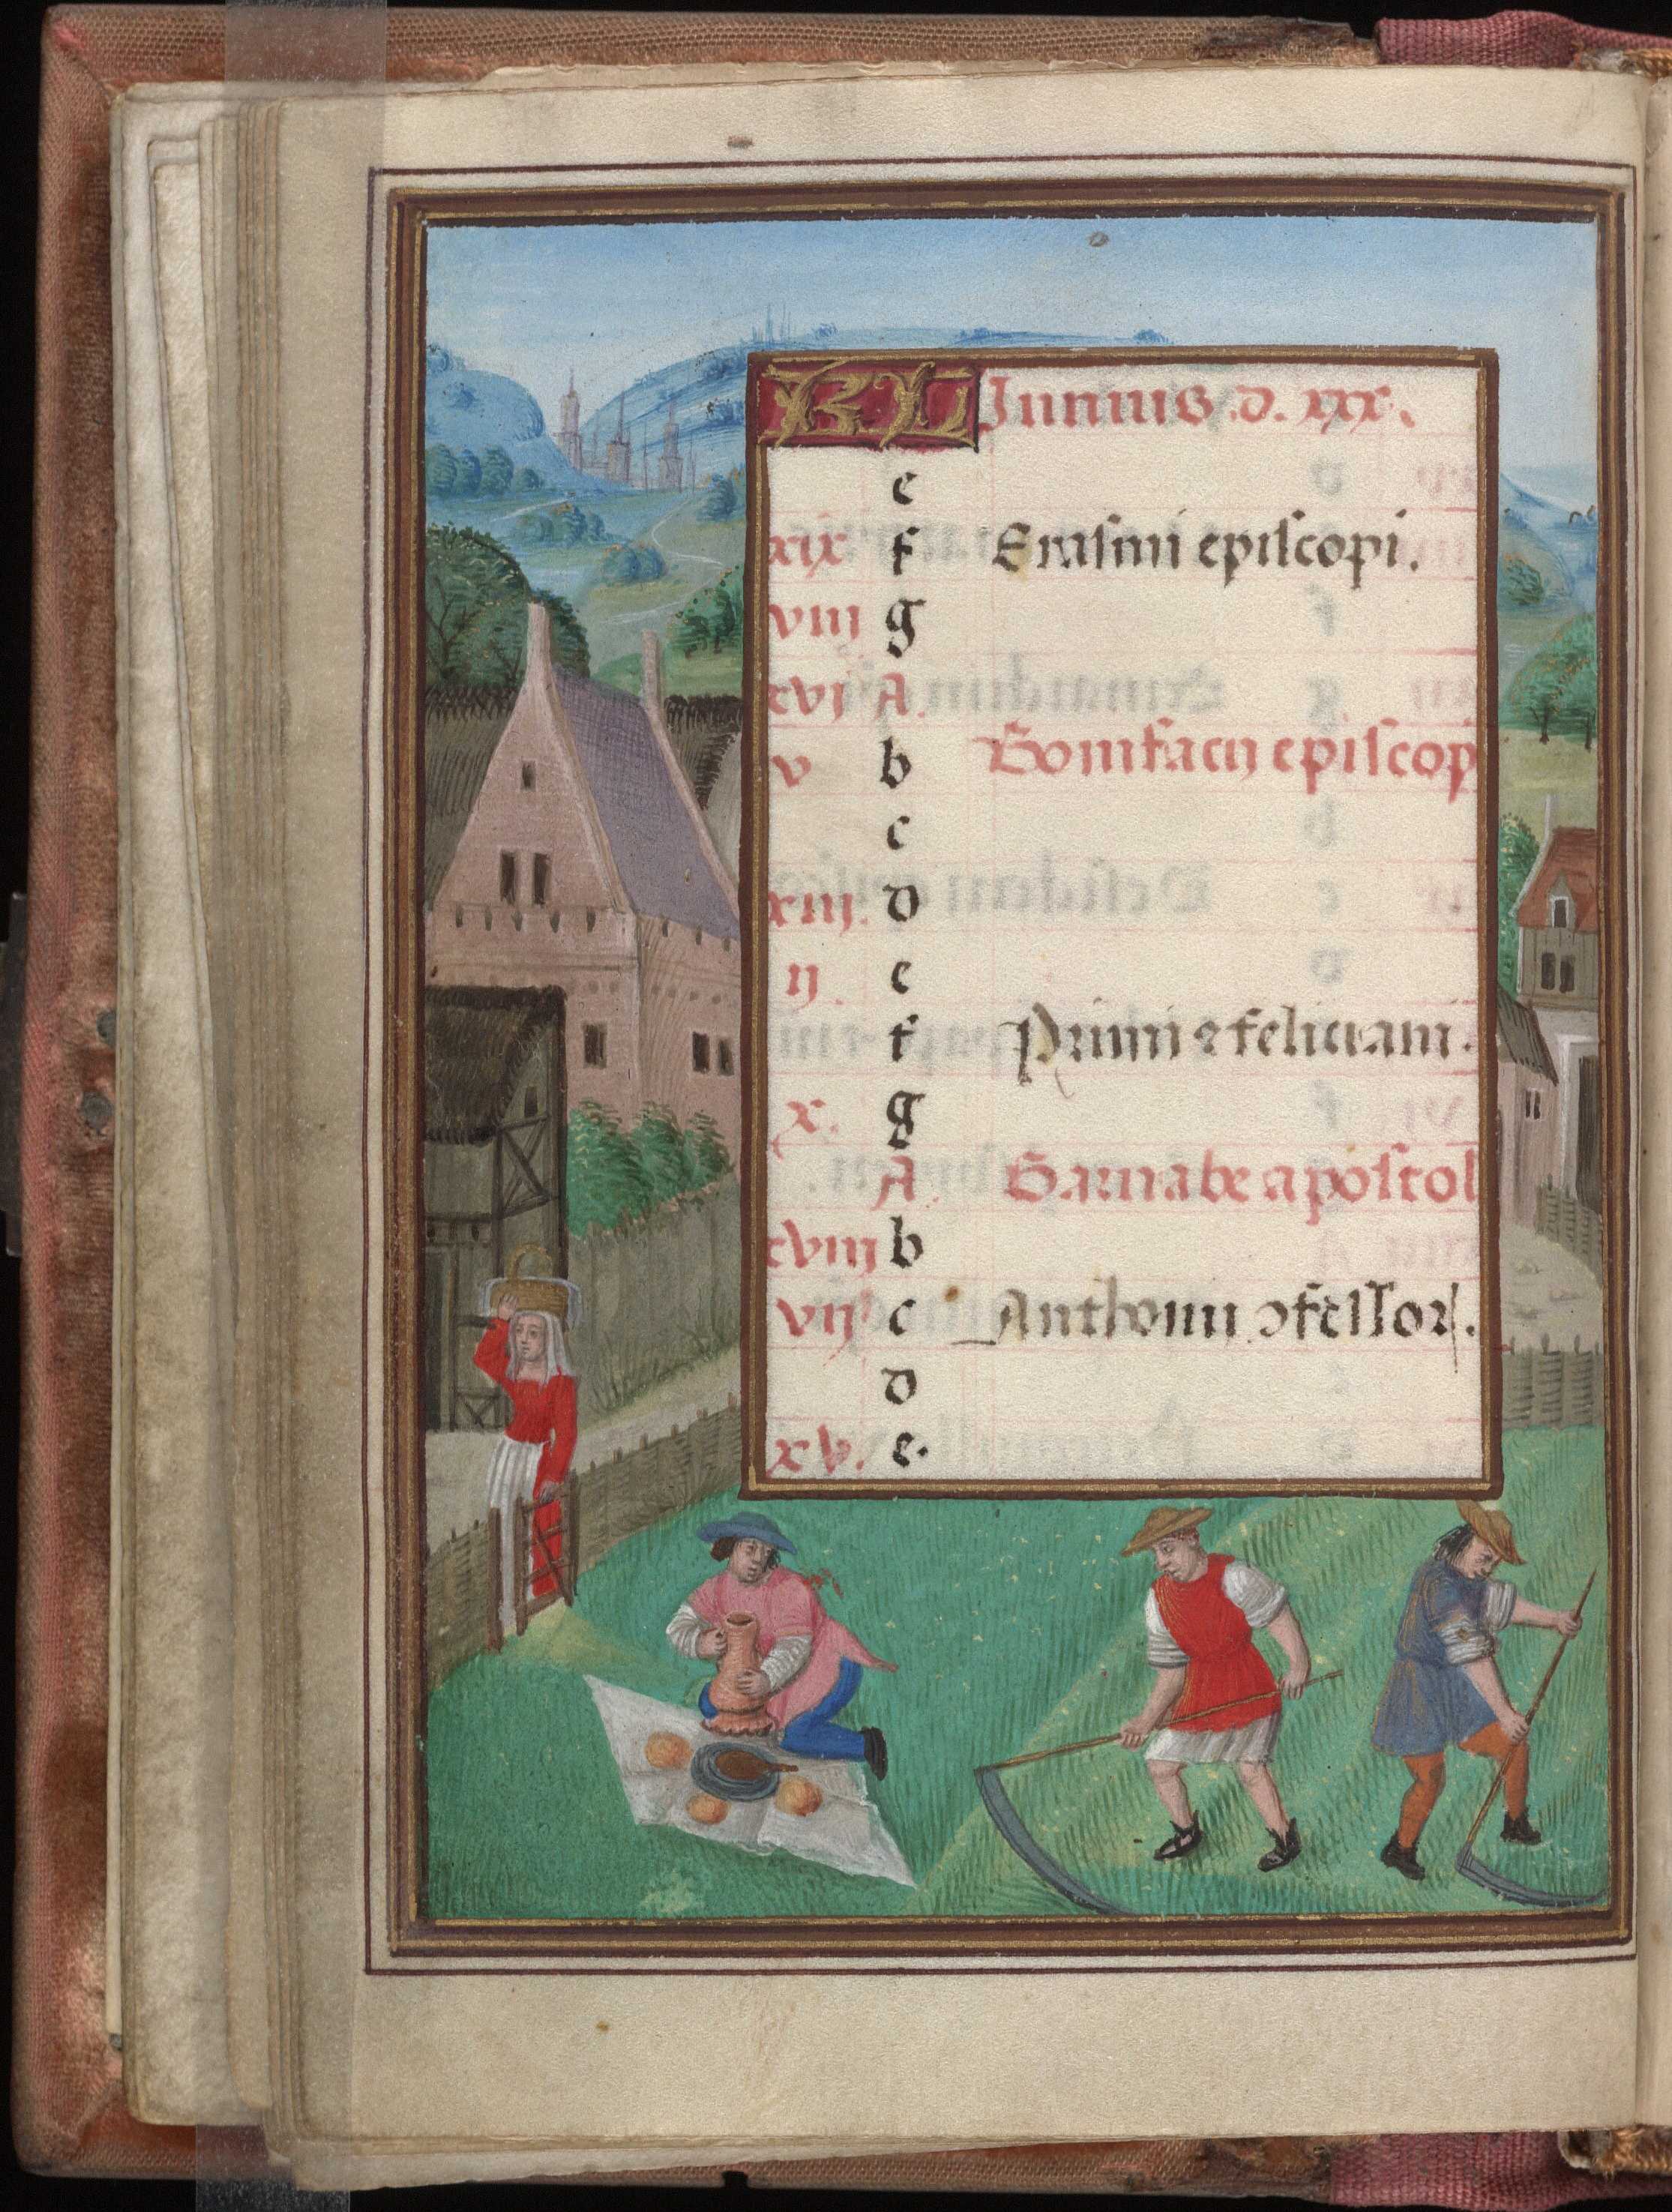 KL Junnius .d. xxx.
e
xix f Erasmi episcopi.
viij g
xvj A.
v b Bonifacij episcop
c
xiij. d
ij. e
f Primi & feliciani.
x. g
A. Barnabe apostol
xviij b
vij c Anthonii ɔfessor.
d
xv. e.